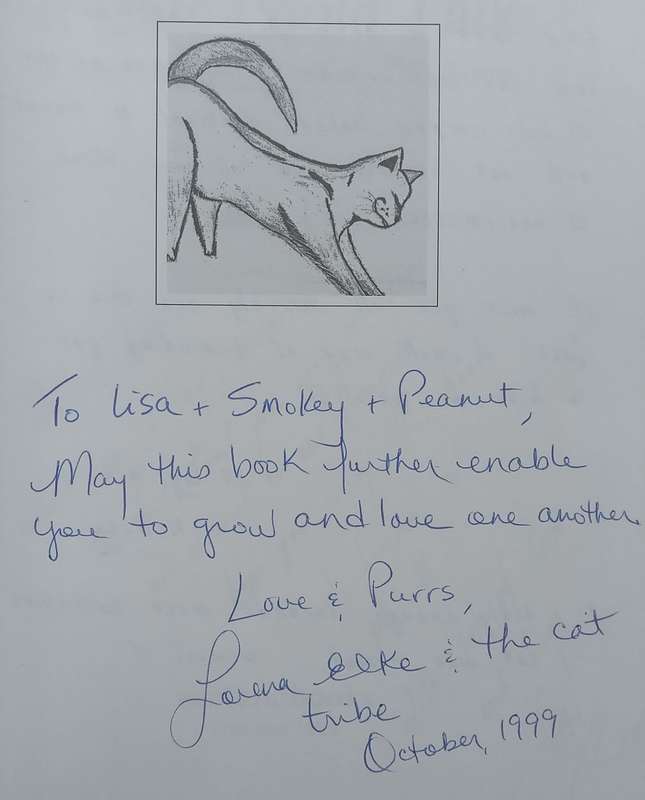 To Lisa + Smokey + Peanut,
May this book further enable
you to grow and love one another.
Love & Purrs,
Lorena Elke & the cat
tribe
October, 1999